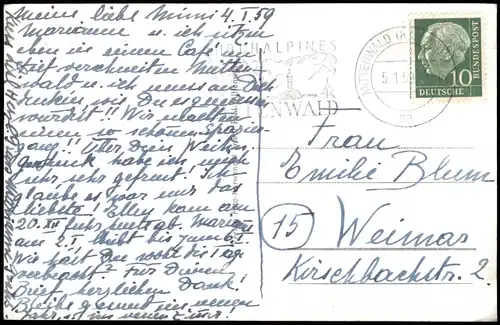 Meine liebe Mimi 4.I.59
Marianne u. ich sitzen
eben in einem Café im
tief verschneiten Mitten-
wald u. ich muss an Dich
denken wie Du es geniessen
würdest!! Wir machten
einen so schönen Spazier-
gang!! Über Dein Weihn.
geschenk habe ich mich
sehr sehr gefreut! Ich
glaube es war mir das
liebste! Elley kam am
20.XII fuhr heute ab. Marianne
am 2.I. bleibt bis zum 6.I.
Wie hast Du wohl die Tage
verbracht? Für Deinen
Brief herzlichen Dank!
Bleibe gesund im neuen
HOCHALPINES
MITTENWALD
MITTENWALD (K
5.1.5
aa
DEUTSCHE BUNDESPOST
10
Frau
Emilie Blum
15 Weimar
Kirschbachstr. 2